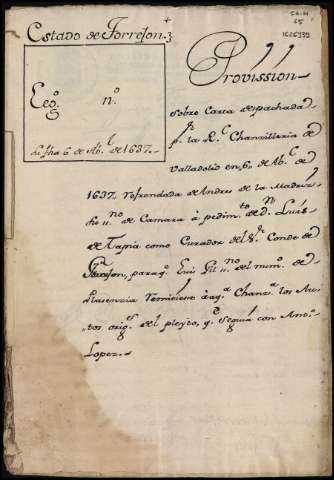 Estado de Torrejon.
Leg.º n.º
Su fha 6. de Ab.l de 1637.
Provission
sobre Carta despachada
p.r la R.l Chanzilleria de
Valladolid en 6,, de Ab.l de
1637,, refrendada de Andres de la
ss.no de Camara á pedim.to de D.n Luis
de Tapia como Curador del S.r Conde de
Torrejon, para q.e Luis Gil ss.no del num.º de
Plasenzia remitiese á aq.a Chanz.a los Au-
tos orig.s del pleyto, q.e Seguia con Ant.º
Lopez.